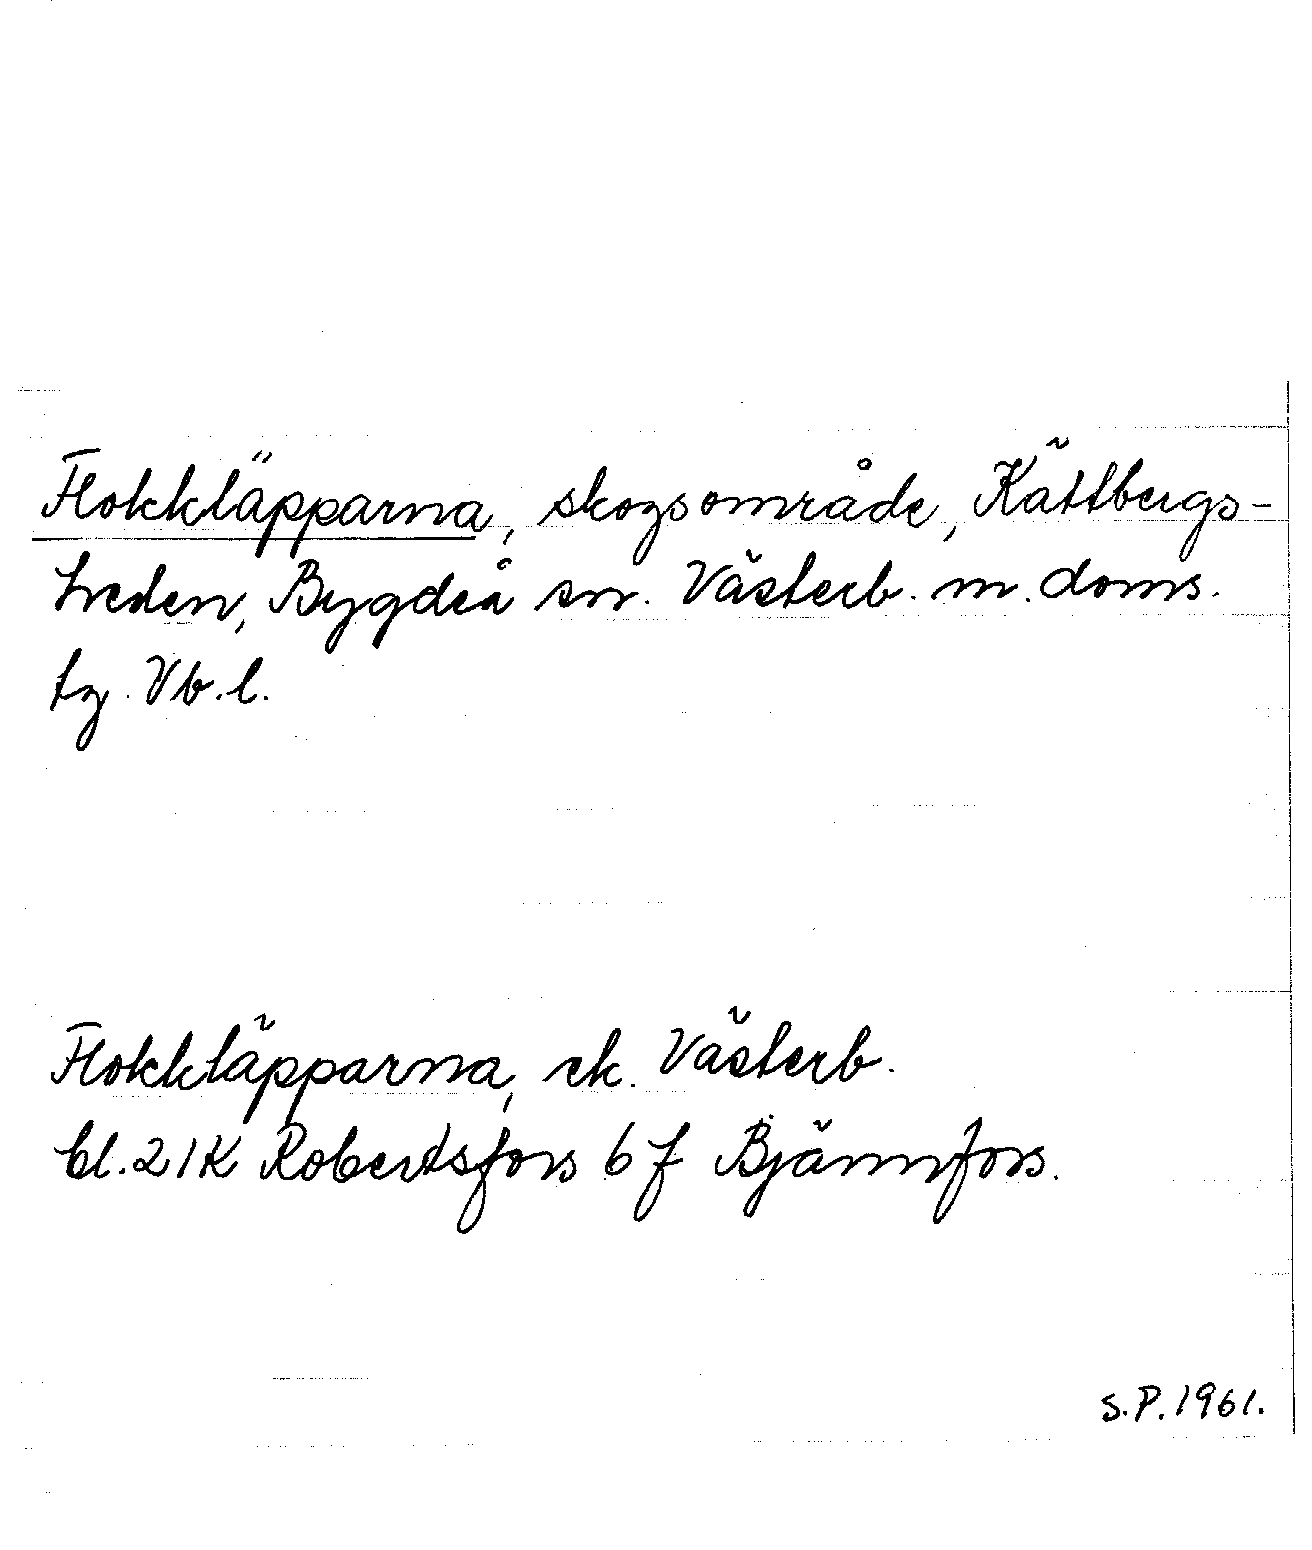 Flokkläpparna, skogsområde, Kättbergs-
heden, Bygdeå sn. Västerb. m. doms.
tg. Vb.l.
Flokkläpparna, ek. Västerb.
bl. 21K Robertsfors 6 f Bjännfors.
S.P. 1961.